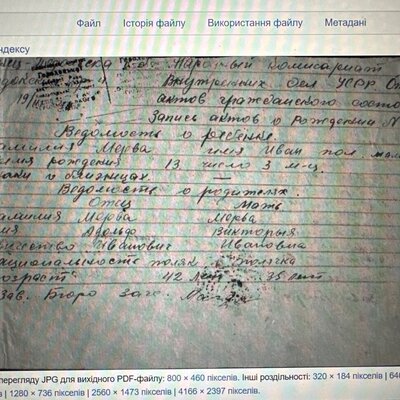 Файл Історія файлу Використання файлу Метадані
ндексу
Народный Комисариат
Внутренних Дел УСРР От
актов гражданского состо
Запись актов о Рождении N
Ведомость о ребенке.
амилия Морва имя Иван пол
рождения 13 число 3 м-ц.
о близницах. —
Ведомость о родителях.
Отец Мать
Морва Морва
Адольф Виктория
Иванович Ивановна
ациональность поляк полячка
озраст 42 лет 35 лет
зав. Бюро загс.
перегляду JPG для вихідного PDF-файлу: 800 × 460 пікселів. Інші роздільності: 320 × 184 пікселів | 640
| 1280 × 736 пікселів | 2560 × 1473 пікселів | 4166 × 2397 пікселів.